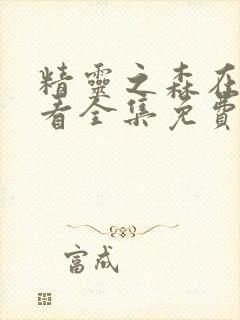 精靈之森在
看全集免費
富成